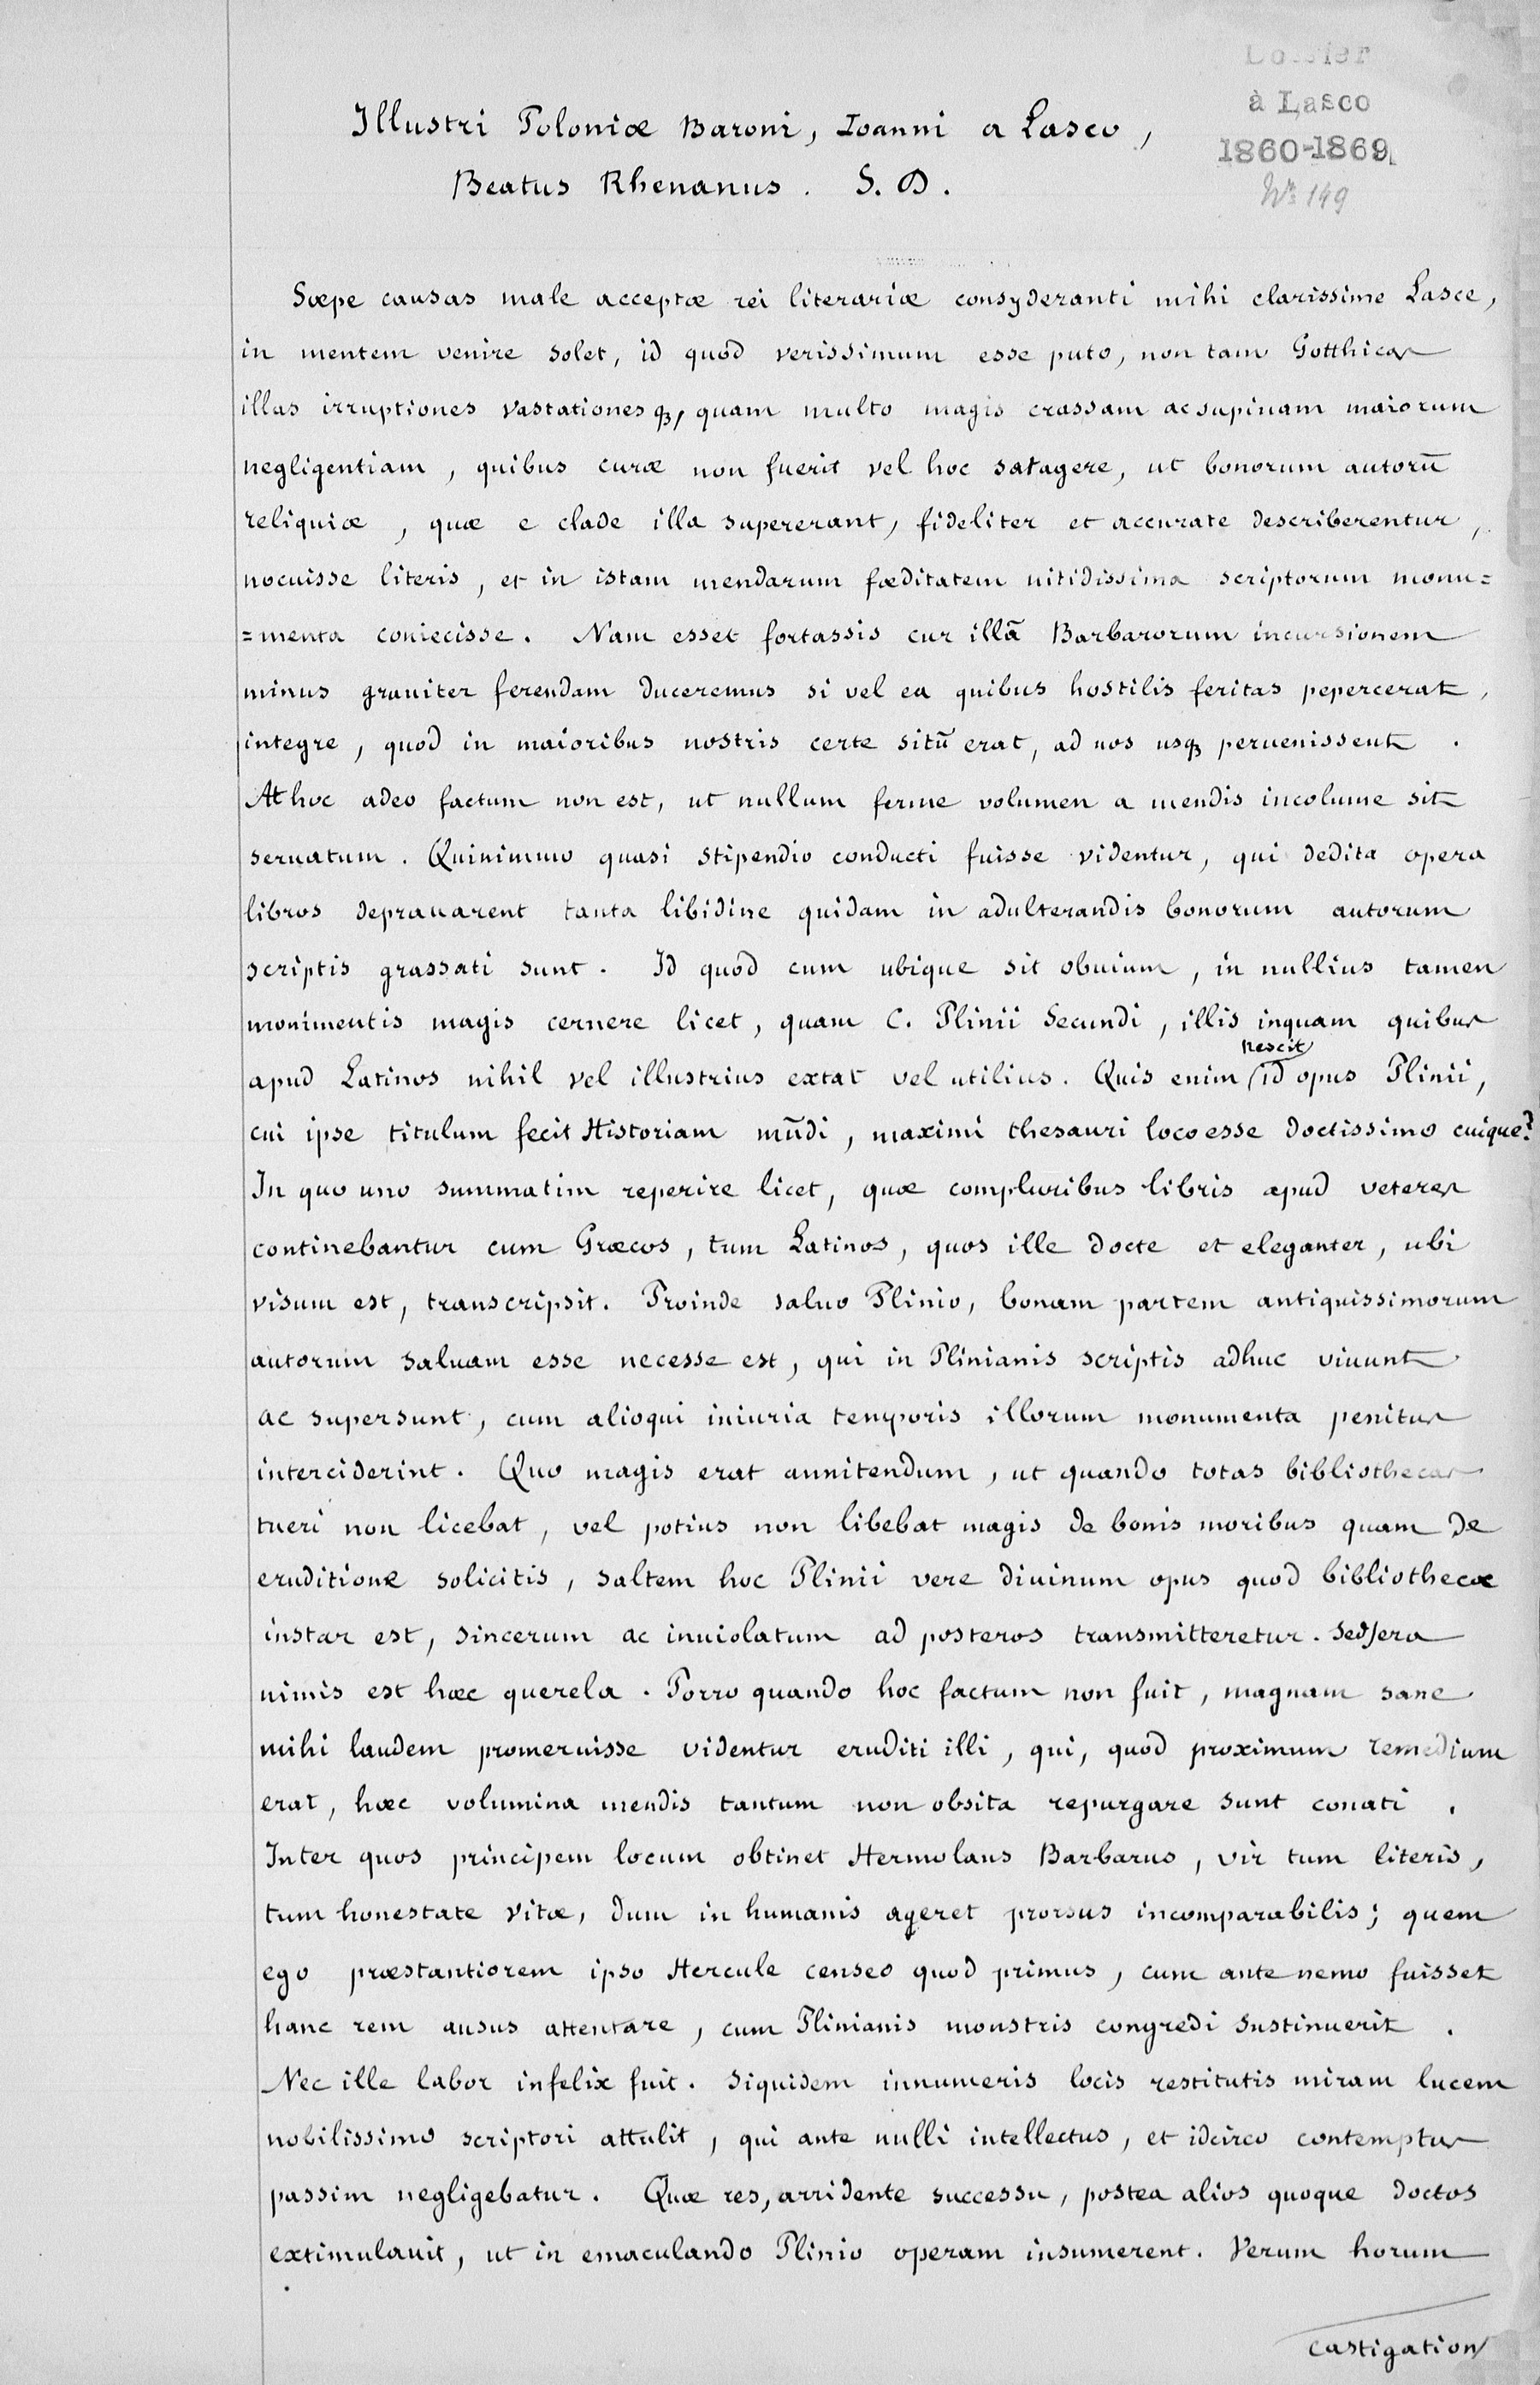 Dossier
à Lasco
1860-1869
Nr. 149
Illustri Poloniæ Baroni, Ioanni a Lasco,
Beatus Rhenanus. S. D.
Sæpe causas male acceptæ rei literariæ consyderanti mihi clarissime Lasce,
in mentem venire solet, id quod verissimum esse puto, non tam Gotthicas
illas irruptiones vastationesqȝ, quam multo magis crassam ac supinam maiorum
negligentiam, quibus curæ non fuerit vel hoc satagere, ut bonorum autorū
reliquiæ, quæ e clade illa supererant, fideliter et accurate describerentur,
nocuisse literis, et in istam mendarum fæditatem nitidissima scriptorum monu=
=menta coniecisse. Nam esset fortassis cur illã Barbarorum incursionem
minus grauiter ferendam duceremus si vel ea quibus hostilis feritas pepercerat,
integre, quod in maioribus nostris certe sitū erat, ad nos usqȝ peruenissent.
At hoc adeo factum non est, ut nullum ferme volumen a mendis incolume sit
seruatum. Quinimmo quasi stipendio conducti fuisse videntur, qui dedita opera
libros deprauarent tanta libidine quidam in adulterandis bonorum autorum
scriptis grassati sunt. Id quod cum ubique sit obuium, in nullius tamen
monimentis magis cernere licet, quam C. Plinii Secundi, illis inquam quibus
apud Latinos nihil vel illustrius extat vel utilius. Quis enim nescit id opus Plinii,
cui ipse titulum fecit Historiam mūdi, maximi thesauri loco esse doctissimo cuique?
In quo uno summatim reperire licet, quæ compluribus libris apud veteres
continebantur cum Græcos, tum Latinos, quos ille docte et eleganter, ubi
visum est, transcripsit. Proinde saluo Plinio, bonam partem antiquissimorum
autorum saluam esse necesse est, qui in Plinianis scriptis adhuc viuunt
ac supersunt, cum alioqui iniuria temporis illorum monumenta penitus
interciderint. Quo magis erat annitendum, ut quando totas bibliothecas
tueri non licebat, vel potius non libebat magis de bonis moribus quam de
eruditione solicitis, saltem hoc Plinii vere diuinum opus quod bibliothecæ
instar est, sincerum ac inuiolatum ad posteros transmitteretur. Sed sera
nimis est hæc querela. Porro quando hoc factum non fuit, magnam sane
mihi laudem promeruisse videntur eruditi illi, qui, quod proximum remedium
erat, hæc volumina mendis tantum non obsita repurgare sunt conati.
Inter quos principem locum obtinet Hermolaus Barbarus, vir tum literis,
tum honestate vitæ, dum in humanis ageret prorsus incomparabilis; quem
ego præstantiorem ipso Hercule censeo quod primus, cum ante nemo fuisset
hanc rem ausus attentare, cum Plinianis monstris congredi sustinuerit.
Nec ille labor infelix fuit. Siquidem innumeris locis restitutis miram lucem
nobilissimo scriptori attulit, qui ante nulli intellectus, et idcirco contemptus
passim negligebatur. Quæ res, arridente successu, postea alios quoque doctos
extimulauit, ut in emaculando Plinio operam insumerent. Verum horum
castigation